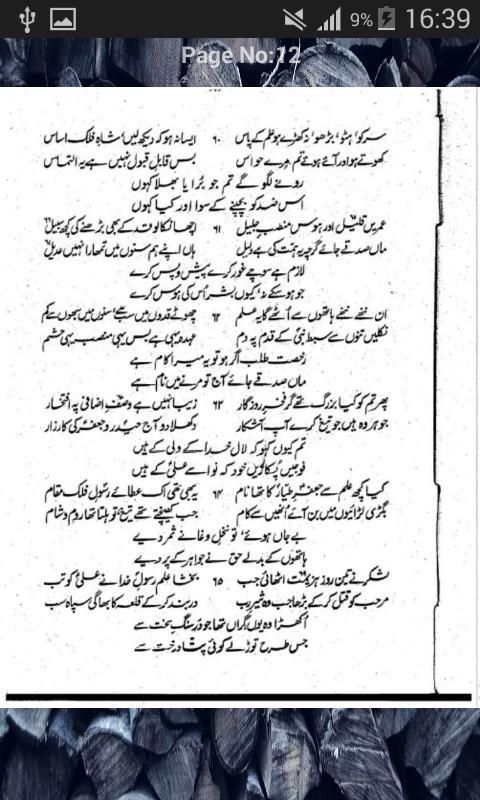 9% 16:39
Page No:12
سرکو، ہٹو، بڑھو، نہ کھڑے ہو علم کے پاس ۶۰ ایسا نہ ہو کہ دیکھ لیں شاہِ فلک اساس
کھوتے ہو اور آئے ہوئے تم مرے حواس بس قابلِ قبول نہیں ہے یہ التماس
رونے لگو گے تم جو بُرا یا بھلا کہوں
اس ضد کو بچپنے کے سوا اور کیا کہوں
عمریں قلیل اور ہوسِ منصبِ جلیل ۶۱ اچھا نکالو قد کے بھی بڑھنے کی کچھ سبیل
ماں صدقے جائے گرچہ یہ ہمت کی ہے دلیل ہاں اپنے ہم سنوں میں تمھارا نہیں عدیل
لازم ہے سوچے غور کرے پیش و پس کرے
جو ہو سکے نہ کیوں بشر اُس کی ہوس کرے
ان ننھے ننھے ہاتھوں سے اُٹھے گا یہ علم ۶۲ چھوٹے قدوں میں سب سے سنوں میں سبھوں سے کم
نکلیں تنوں سے سبطِ نبیؐ کے قدم پہ دم عہدہ یہی ہے بس یہی منصب یہی حشم
رخصت طلب اگر ہو تو یہ میرا کام ہے
ماں صدقے جائے آج تو مرنے میں نام ہے
پھر تم کو کیا بزرگ تھے گر فخرِ روزگار ۶۳ زیبا نہیں ہے وصفِ اضافی پہ افتخار
جوہر وہ ہیں جو تیغ کرے آپ آشکار دکھلا دو آج حیدر و جعفر کی کارزار
تم کیوں کہو کہ لال خدا کے ولی کے ہیں
فوجیں پکاریں خود کہ نواسے علیؑ کے ہیں
کیا کچھ علم سے جعفرِ طیار کا تھا نام ۶۴ یہ بھی تھی اک عطائے رسولِ فلک مقام
بگڑی لڑائیوں میں بن آئے اُنھیں سے کام جب کھینچتے تھے تیغ تو ہلتا تھا روم و شام
بے جاں ہوئے تو نخلِ وغا نے ثمر دیے
ہاتھوں کے بدلے حق نے جواہر کے پر دیے
لشکر نے تین روز ہزیمت اٹھائی جب ۶۵ بخشا علم رسولِ خدا نے علیؑ کو تب
مرحب کو قتل کر کے بڑھا جب وہ شیرِ رب در بند کر کے قلعہ کا بھاگی سپاہ سب
اُکھڑا وہ یوں گراں تھا جو در سنگِ سخت سے
جس طرح توڑ لے کوئی پتا درخت سے